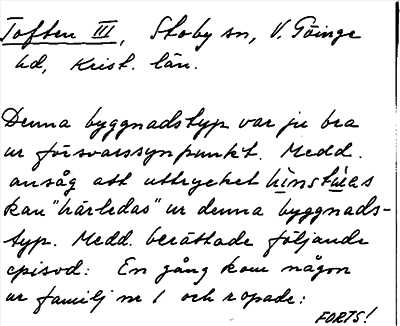 Toften III, Stoby sn, V. Göinge
hd, Krist. län.
Denna byggnadstyp var ju bra
ur försvarssynpunkt. Medd.
ansåg att uttrycket
kan "härledas" ur denna byggnads-
typ. Medd. berättade följande
episod: En gång kom någon
ur familj nr 1 och ropade:
FORTS!